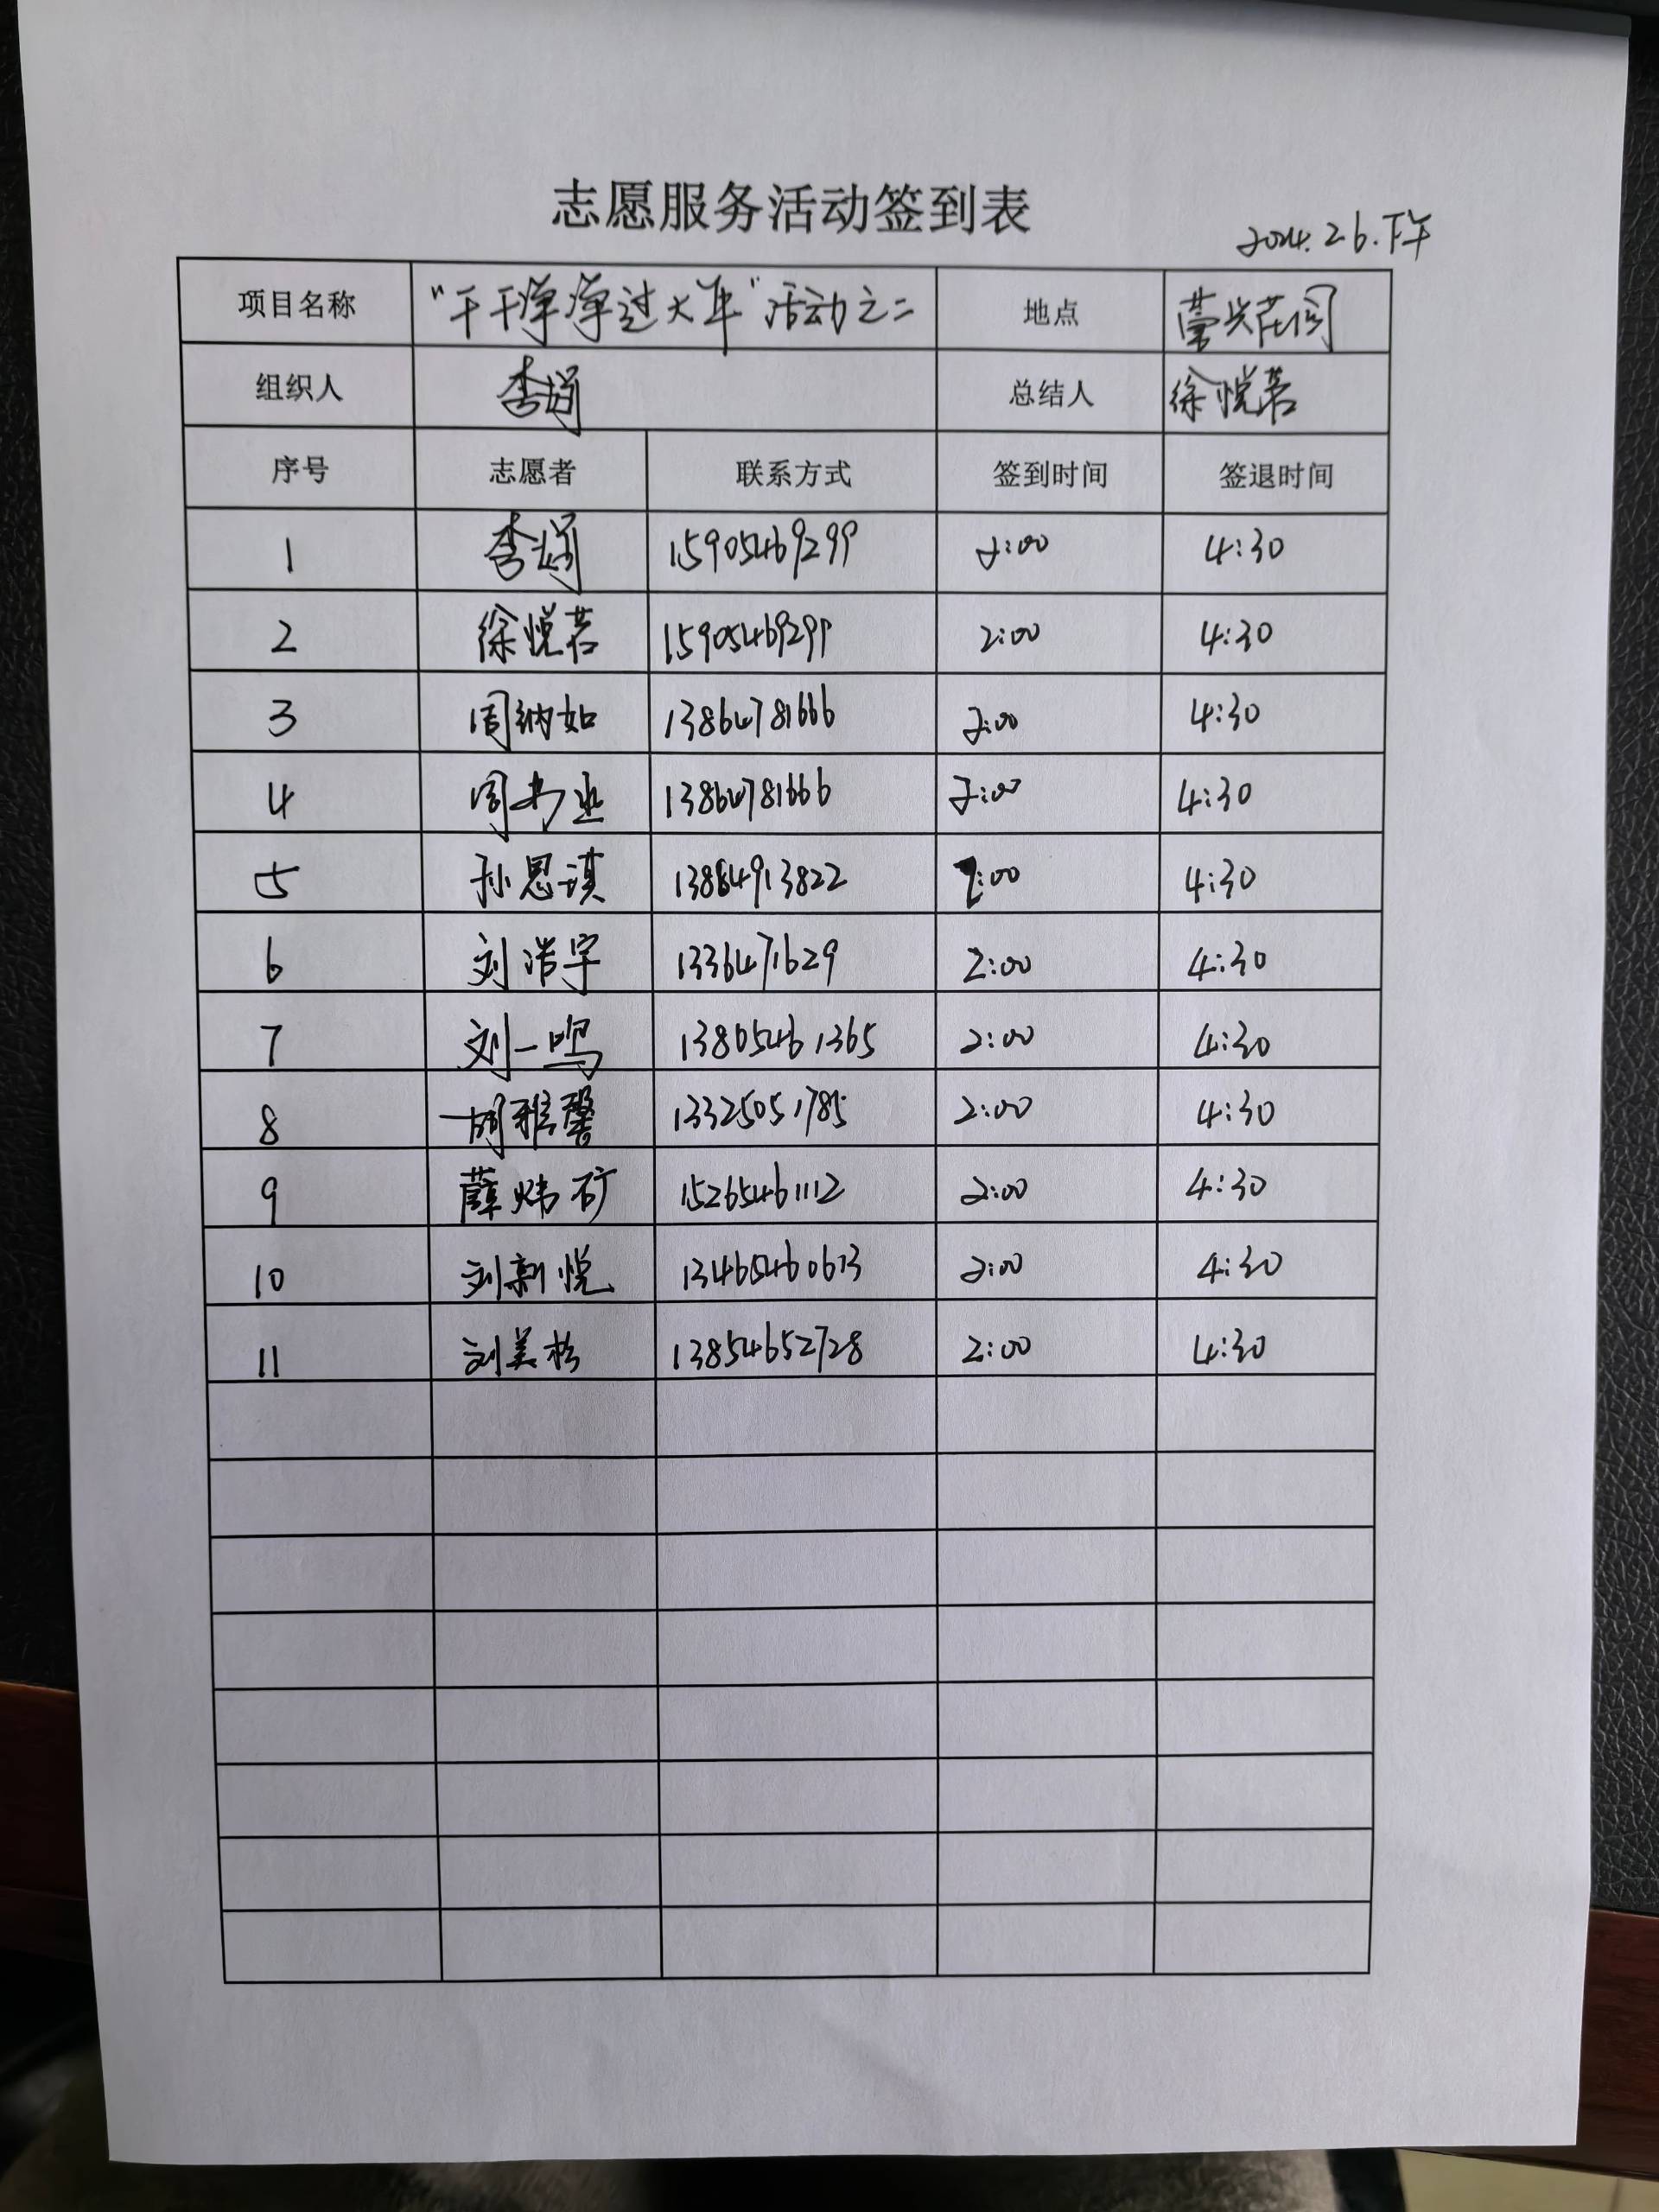 志愿服务活动签到表
2024.2.6.下午
项目名称 "干干净净过大年"活动之二 地点
组织人 李娟 总结人 徐悦若
序号 志愿者 联系方式 签到时间 签退时间
1 李娟 15905469299 2:00 4:30
2 徐悦若 15905469299 2:00 4:30
3 周纳如 13864781666 2:00 4:30
4 13864781666 2:00 4:30
5 孙思琪 13864913822 2:00 4:30
6 刘浩宇 1336471629 2:00 4:30
7 刘一鸣 13805461365 2:00 4:30
8 胡雅馨 13325051785 2:00 4:30
9 薛炜矿 15265461112 2:00 4:30
10 刘新悦 13465460613 2:00 4:30
11 刘美杉 13854652728 2:00 4:30